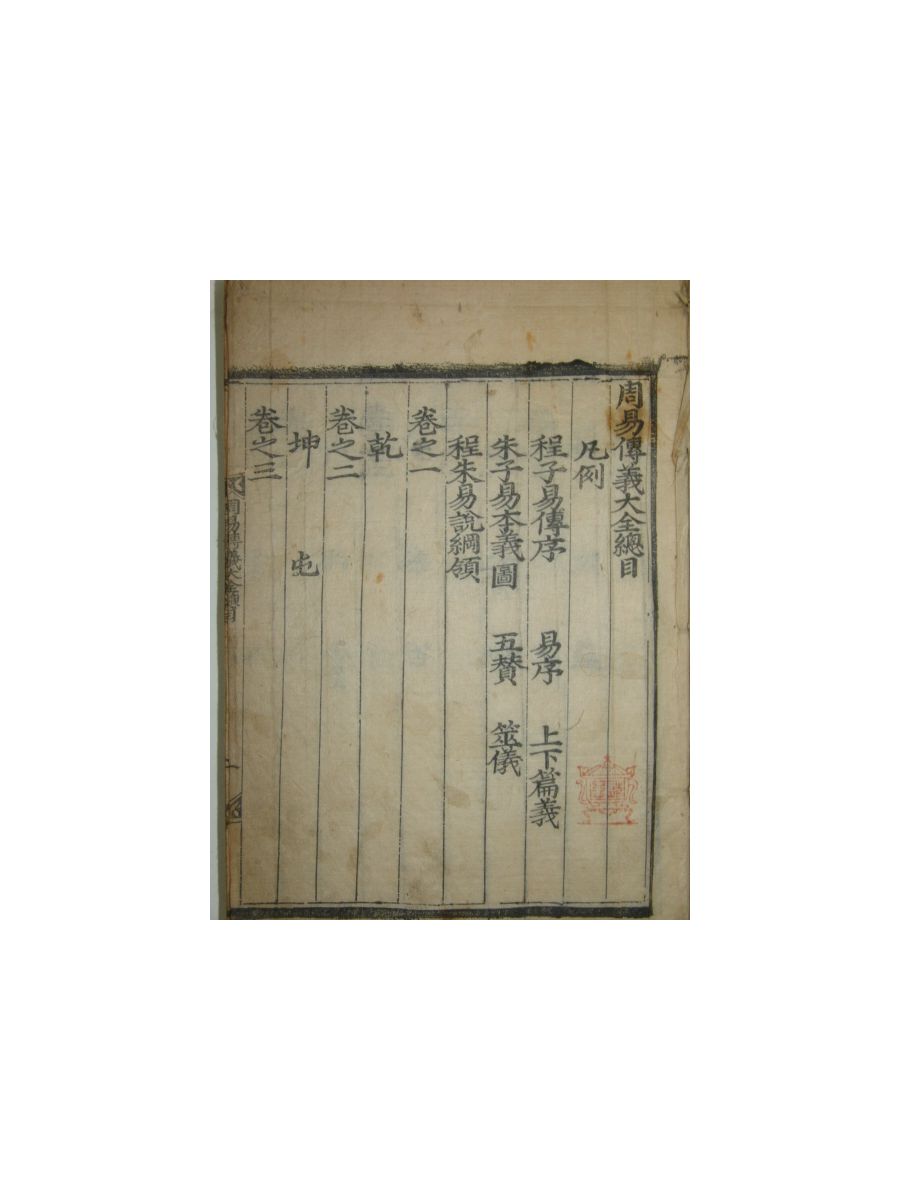 周易傳義大全總目
凡例
程子易傳序 易序 上下篇義
朱子易本義圖 五贊 筮儀
程朱易說綱領
卷之一
乾
卷之二
坤 屯
卷之三
周易傳義大全總目
一